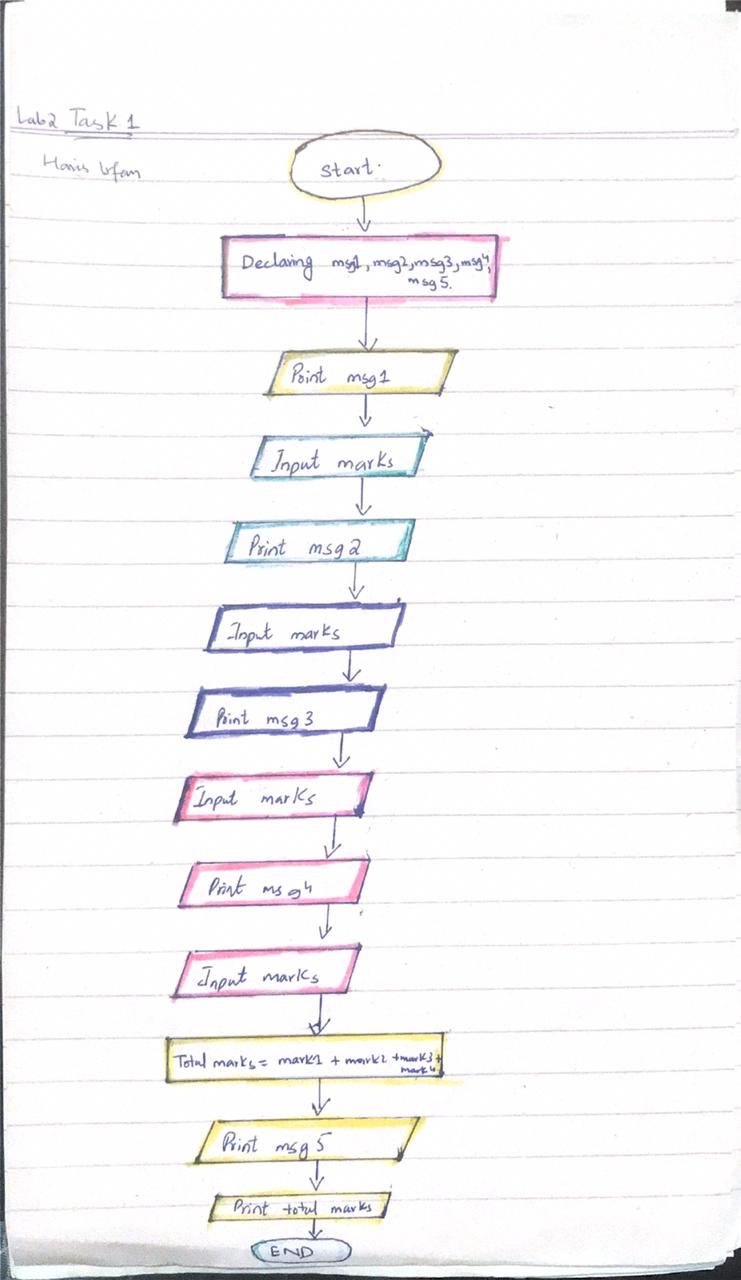 Lab2 Task 1
Haris Irfan
Start.
Declaring msg1, msg2, msg3, msg4,
msg5.
Print msg1
Input marks
Print msg2
Input marks
Print msg3
Input marks
Print msg4
Input marks
Total marks = mark1 + mark2 + mark3 +
mark4
Print msg5
Print total marks
END